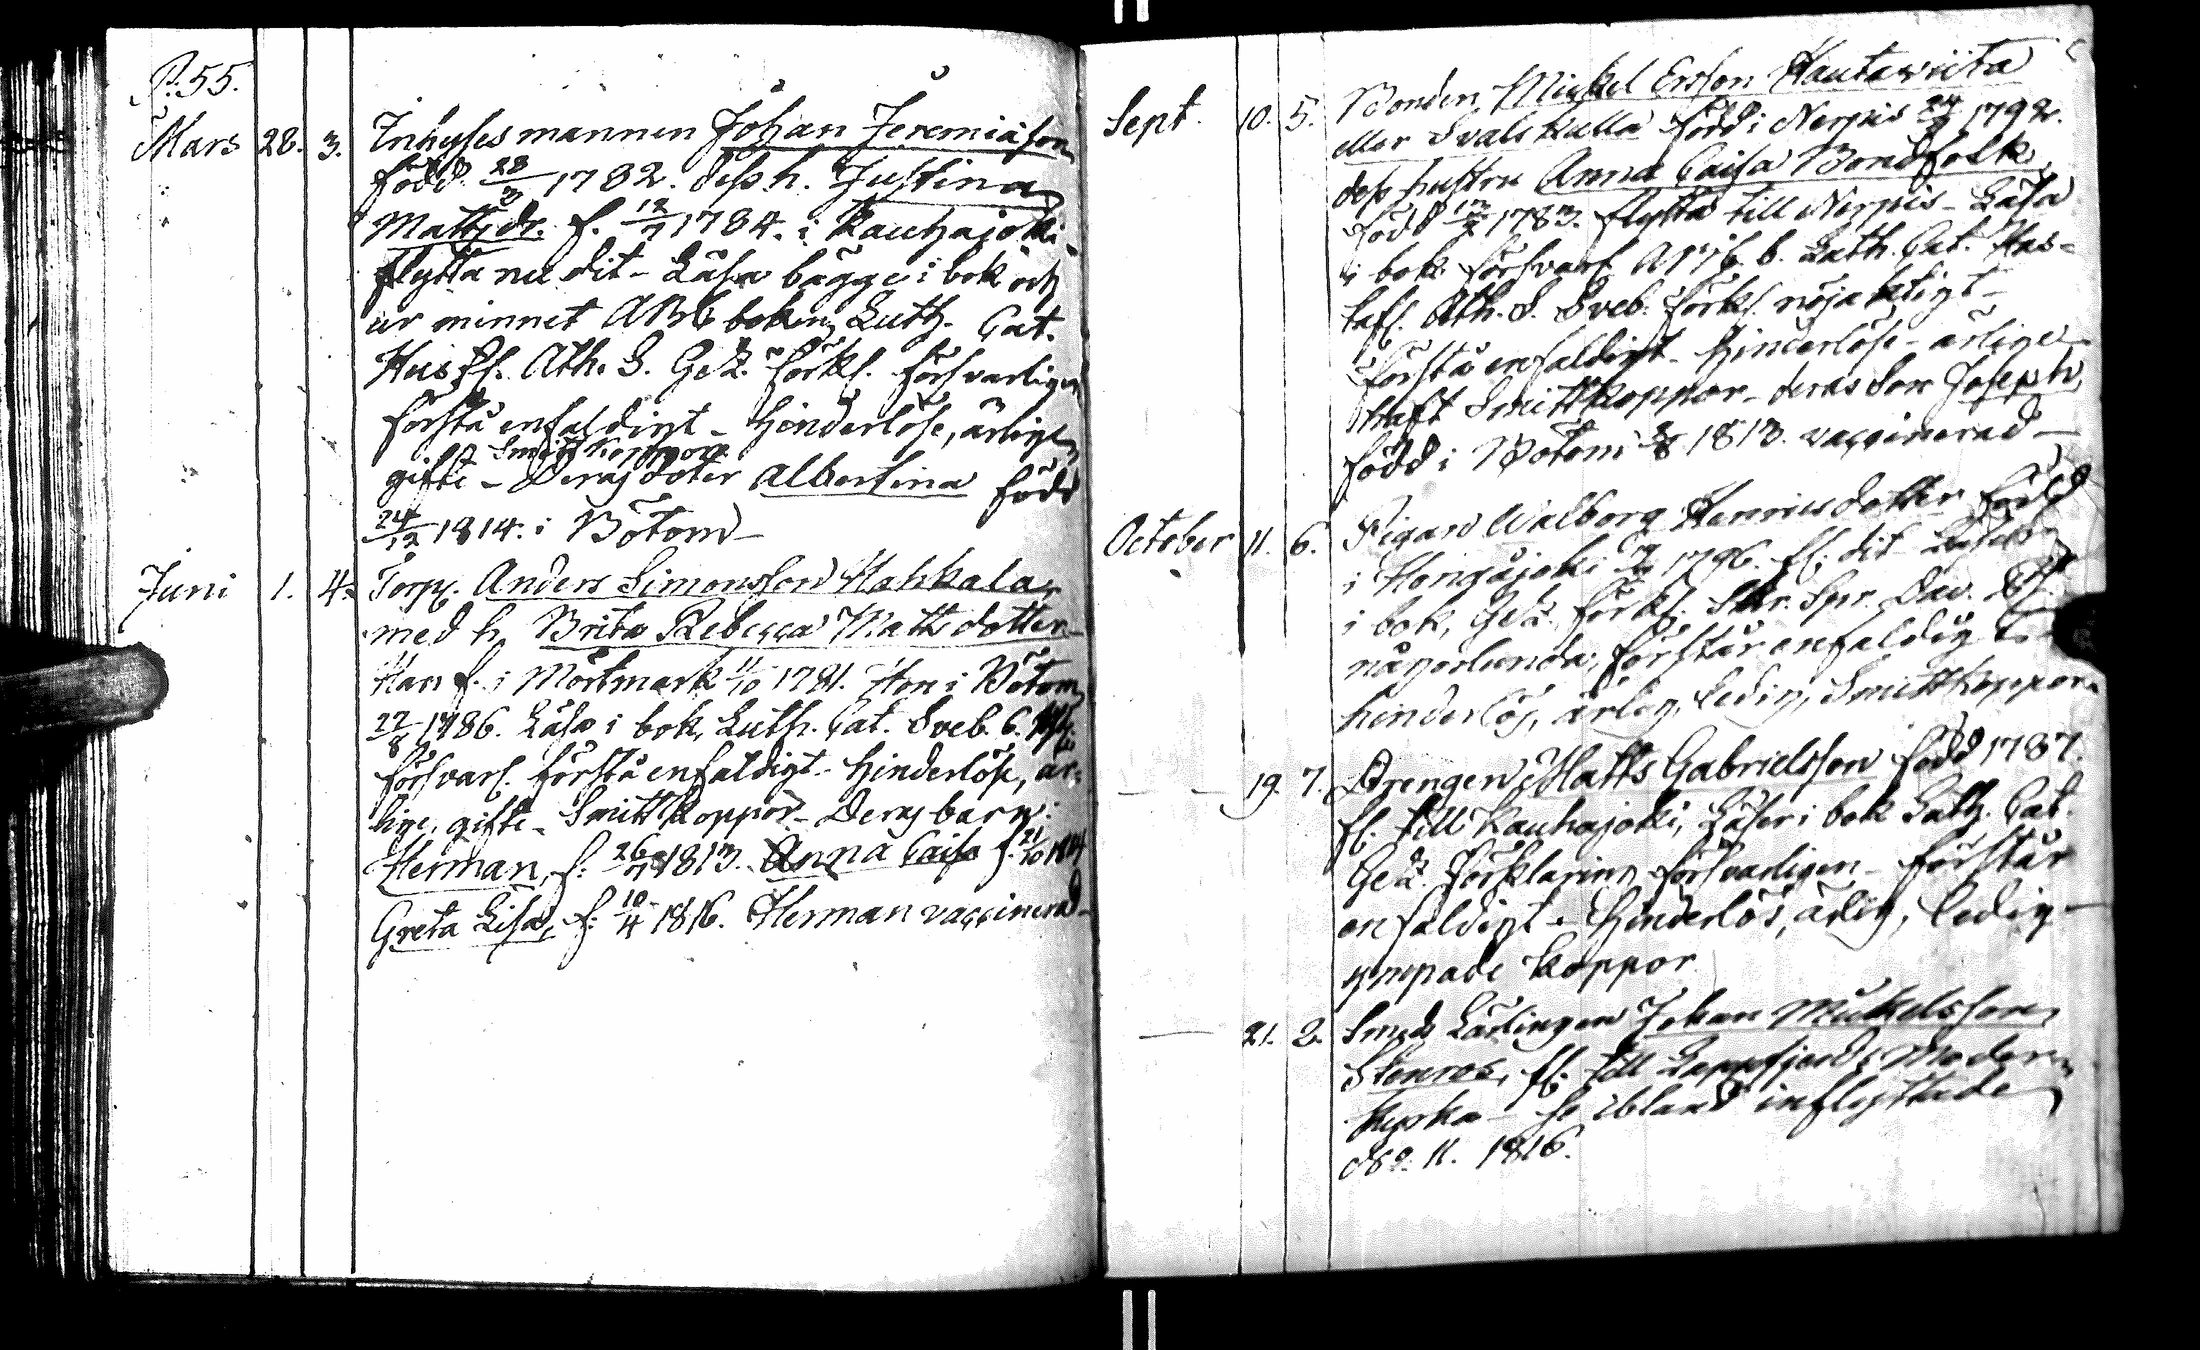 P. 55.
Mars 28. 3. Inhyses mannen Johan Jeremiäson
född 28/3 1782. dess h. Justina
Mattsdr. f. 12/7 1784. i Kauhajoki
flytta nu dit - Läsa bägge i bok och
ur minnet ABC boken, Luth. Cat.
Hustfl. Ath. S. Gez. förkl. försvarligen
förstå enfaldigt - hinderlöse, ärlige
Smittkoppor
gifte - Deras doter Albertina född
24/12 1814. i Bötom -
Juni 1. 4. Torp. Anders Simonsson Kahkala,
med h. Brita Rebecca Mattsdotter -
Han f. i Mörtmark 11/10 1781. Hon i Bötom
22/8 1786. Läsa i bok, Luth. Cat. Sveb. 6.
försvarl. förstå enfaldigt - hinderlöse, är-
lige, gifte - Smittkoppor - Deras barn:
Herman, f. 26/7 1813. Anna Caisa f. 21/10 1814
Greta Lisa, f. 10/4 1816. Herman vaccinerad -
Sept. 10. 5. Bonden Mickel Ersson Hautaviita
eller Svalskulla född i Nerpis 24/2 1792.
dess hustru Anna Caisa Bondfolk,
född 1783. flytta till Nerpis - Läsa
i bok försvarl. ABC b. Luth. Cat. Hus-
tafl. Ath. S. Sveb. förkl. nöjaktigt -
förstå enfaldigt - hinderlöse - ärlige -
haft Smittkoppor - deras Son Joseph
född i Bötom 1813. vaccinerad -
October 11. 6. Pigan Walborg Henricsdotter född
i Hongåjoki 1796. fl. dit Läser
i bok, Gez. förkl. Skr. Spr. Dav. Ps.
någorlunda, förstår enfaldigt -
hinderlös, ärlig, ledig, Smittkoppor.
- - 19. 7. Drengen Matts Gabrielsson född 1787.
fl. till Kauhajoki, Läser i bok Luth. Cat.
Gez. förklaring försvarligen - förstår
enfaldigt - hinderlös, ärlig, ledig -
ympade koppor
- 21. 2. Smeds Lärlingen Johan Mickelsson
Stenros, fl. till Lappfjerds Moder
kyrka - se ibland inflyttade
d. 11. 1816.